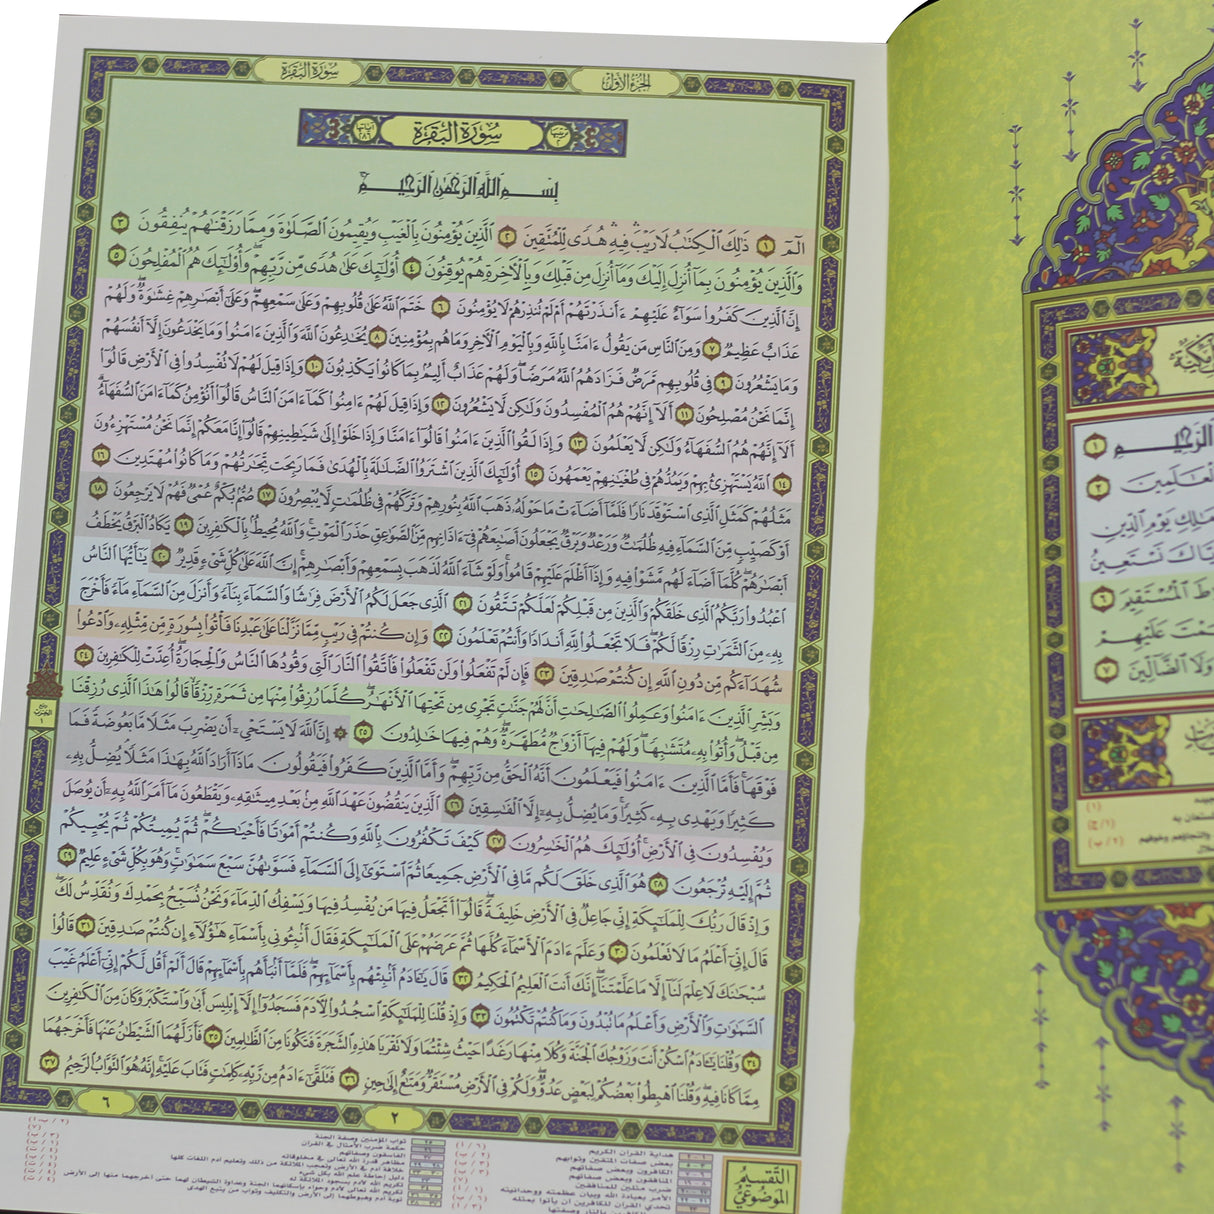 سُورَةُ البَقَرَةِ
الجُزءُ الأوّلُ
سُورَةُ البَقَرَةِ
بِسْمِ اللَّهِ الرَّحْمَٰنِ الرَّحِيمِ
الٓمٓ ١ ذَٰلِكَ الْكِتَابُ لَا رَيْبَ فِيهِ هُدًى لِّلْمُتَّقِينَ ٢ الَّذِينَ يُؤْمِنُونَ بِالْغَيْبِ وَيُقِيمُونَ الصَّلَاةَ وَمِمَّا رَزَقْنَاهُمْ يُنفِقُونَ ٣
وَالَّذِينَ يُؤْمِنُونَ بِمَا أُنزِلَ إِلَيْكَ وَمَا أُنزِلَ مِن قَبْلِكَ وَبِالْآخِرَةِ هُمْ يُوقِنُونَ ٤ أُولَٰئِكَ عَلَىٰ هُدًى مِّن رَّبِّهِمْ وَأُولَٰئِكَ هُمُ الْمُفْلِحُونَ ٥
إِنَّ الَّذِينَ كَفَرُوا سَوَاءٌ عَلَيْهِمْ ءَأَنذَرْتَهُمْ أَمْ لَمْ تُنذِرْهُمْ لَا يُؤْمِنُونَ ٦ خَتَمَ اللَّهُ عَلَىٰ قُلُوبِهِمْ وَعَلَىٰ سَمْعِهِمْ وَعَلَىٰ أَبْصَارِهِمْ غِشَاوَةٌ وَلَهُمْ
عَذَابٌ عَظِيمٌ ٧ وَمِنَ النَّاسِ مَن يَقُولُ ءَامَنَّا بِاللَّهِ وَبِالْيَوْمِ الْآخِرِ وَمَا هُم بِمُؤْمِنِينَ ٨ يُخَادِعُونَ اللَّهَ وَالَّذِينَ ءَامَنُوا وَمَا يَخْدَعُونَ إِلَّا أَنفُسَهُمْ
وَمَا يَشْعُرُونَ ٩ فِي قُلُوبِهِم مَّرَضٌ فَزَادَهُمُ اللَّهُ مَرَضًا وَلَهُمْ عَذَابٌ أَلِيمٌ بِمَا كَانُوا يَكْذِبُونَ ١٠ وَإِذَا قِيلَ لَهُمْ لَا تُفْسِدُوا فِي الْأَرْضِ قَالُوا
إِنَّمَا نَحْنُ مُصْلِحُونَ ١١ أَلَا إِنَّهُمْ هُمُ الْمُفْسِدُونَ وَلَٰكِن لَّا يَشْعُرُونَ ١٢ وَإِذَا قِيلَ لَهُمْ ءَامِنُوا كَمَا ءَامَنَ النَّاسُ قَالُوا أَنُؤْمِنُ كَمَا ءَامَنَ السُّفَهَاءُ
أَلَا إِنَّهُمْ هُمُ السُّفَهَاءُ وَلَٰكِن لَّا يَعْلَمُونَ ١٣ وَإِذَا لَقُوا الَّذِينَ ءَامَنُوا قَالُوا ءَامَنَّا وَإِذَا خَلَوْا إِلَىٰ شَيَاطِينِهِمْ قَالُوا إِنَّا مَعَكُمْ إِنَّمَا نَحْنُ مُسْتَهْزِءُونَ
١٤ اللَّهُ يَسْتَهْزِئُ بِهِمْ وَيَمُدُّهُمْ فِي طُغْيَانِهِمْ يَعْمَهُونَ ١٥ أُولَٰئِكَ الَّذِينَ اشْتَرَوُا الضَّلَالَةَ بِالْهُدَىٰ فَمَا رَبِحَت تِّجَارَتُهُمْ وَمَا كَانُوا مُهْتَدِينَ ١٦
مَثَلُهُمْ كَمَثَلِ الَّذِي اسْتَوْقَدَ نَارًا فَلَمَّا أَضَاءَتْ مَا حَوْلَهُ ذَهَبَ اللَّهُ بِنُورِهِمْ وَتَرَكَهُمْ فِي ظُلُمَاتٍ لَّا يُبْصِرُونَ ١٧ صُمٌّ بُكْمٌ عُمْيٌ فَهُمْ لَا يَرْجِعُونَ ١٨
أَوْ كَصَيِّبٍ مِّنَ السَّمَاءِ فِيهِ ظُلُمَاتٌ وَرَعْدٌ وَبَرْقٌ يَجْعَلُونَ أَصَابِعَهُمْ فِي ءَاذَانِهِم مِّنَ الصَّوَاعِقِ حَذَرَ الْمَوْتِ وَاللَّهُ مُحِيطٌ بِالْكَافِرِينَ ١٩ يَكَادُ الْبَرْقُ يَخْطَفُ
أَبْصَارَهُمْ كُلَّمَا أَضَاءَ لَهُم مَّشَوْا فِيهِ وَإِذَا أَظْلَمَ عَلَيْهِمْ قَامُوا وَلَوْ شَاءَ اللَّهُ لَذَهَبَ بِسَمْعِهِمْ وَأَبْصَارِهِمْ إِنَّ اللَّهَ عَلَىٰ كُلِّ شَيْءٍ قَدِيرٌ ٢٠ يَا أَيُّهَا النَّاسُ
اعْبُدُوا رَبَّكُمُ الَّذِي خَلَقَكُمْ وَالَّذِينَ مِن قَبْلِكُمْ لَعَلَّكُمْ تَتَّقُونَ ٢١ الَّذِي جَعَلَ لَكُمُ الْأَرْضَ فِرَاشًا وَالسَّمَاءَ بِنَاءً وَأَنزَلَ مِنَ السَّمَاءِ مَاءً فَأَخْرَجَ
بِهِ مِنَ الثَّمَرَاتِ رِزْقًا لَّكُمْ فَلَا تَجْعَلُوا لِلَّهِ أَندَادًا وَأَنتُمْ تَعْلَمُونَ ٢٢ وَإِن كُنتُمْ فِي رَيْبٍ مِّمَّا نَزَّلْنَا عَلَىٰ عَبْدِنَا فَأْتُوا بِسُورَةٍ مِّن مِّثْلِهِ وَادْعُوا
شُهَدَاءَكُم مِّن دُونِ اللَّهِ إِن كُنتُمْ صَادِقِينَ ٢٣ فَإِن لَّمْ تَفْعَلُوا وَلَن تَفْعَلُوا فَاتَّقُوا النَّارَ الَّتِي وَقُودُهَا النَّاسُ وَالْحِجَارَةُ أُعِدَّتْ لِلْكَافِرِينَ ٢٤
وَبَشِّرِ الَّذِينَ ءَامَنُوا وَعَمِلُوا الصَّالِحَاتِ أَنَّ لَهُمْ جَنَّاتٍ تَجْرِي مِن تَحْتِهَا الْأَنْهَارُ كُلَّمَا رُزِقُوا مِنْهَا مِن ثَمَرَةٍ رِّزْقًا قَالُوا هَٰذَا الَّذِي رُزِقْنَا
مِن قَبْلُ وَأُتُوا بِهِ مُتَشَابِهًا وَلَهُمْ فِيهَا أَزْوَاجٌ مُّطَهَّرَةٌ وَهُمْ فِيهَا خَالِدُونَ ٢٥ إِنَّ اللَّهَ لَا يَسْتَحْيِي أَن يَضْرِبَ مَثَلًا مَّا بَعُوضَةً فَمَا
فَوْقَهَا فَأَمَّا الَّذِينَ ءَامَنُوا فَيَعْلَمُونَ أَنَّهُ الْحَقُّ مِن رَّبِّهِمْ وَأَمَّا الَّذِينَ كَفَرُوا فَيَقُولُونَ مَاذَا أَرَادَ اللَّهُ بِهَٰذَا مَثَلًا يُضِلُّ بِهِ
كَثِيرًا وَيَهْدِي بِهِ كَثِيرًا وَمَا يُضِلُّ بِهِ إِلَّا الْفَاسِقِينَ ٢٦ الَّذِينَ يَنقُضُونَ عَهْدَ اللَّهِ مِن بَعْدِ مِيثَاقِهِ وَيَقْطَعُونَ مَا أَمَرَ اللَّهُ بِهِ أَن يُوصَلَ
وَيُفْسِدُونَ فِي الْأَرْضِ أُولَٰئِكَ هُمُ الْخَاسِرُونَ ٢٧ كَيْفَ تَكْفُرُونَ بِاللَّهِ وَكُنتُمْ أَمْوَاتًا فَأَحْيَاكُمْ ثُمَّ يُمِيتُكُمْ ثُمَّ يُحْيِيكُمْ
ثُمَّ إِلَيْهِ تُرْجَعُونَ ٢٨ هُوَ الَّذِي خَلَقَ لَكُم مَّا فِي الْأَرْضِ جَمِيعًا ثُمَّ اسْتَوَىٰ إِلَى السَّمَاءِ فَسَوَّاهُنَّ سَبْعَ سَمَاوَاتٍ وَهُوَ بِكُلِّ شَيْءٍ عَلِيمٌ ٢٩
وَإِذْ قَالَ رَبُّكَ لِلْمَلَائِكَةِ إِنِّي جَاعِلٌ فِي الْأَرْضِ خَلِيفَةً قَالُوا أَتَجْعَلُ فِيهَا مَن يُفْسِدُ فِيهَا وَيَسْفِكُ الدِّمَاءَ وَنَحْنُ نُسَبِّحُ بِحَمْدِكَ وَنُقَدِّسُ لَكَ
قَالَ إِنِّي أَعْلَمُ مَا لَا تَعْلَمُونَ ٣٠ وَعَلَّمَ ءَادَمَ الْأَسْمَاءَ كُلَّهَا ثُمَّ عَرَضَهُمْ عَلَى الْمَلَائِكَةِ فَقَالَ أَنبِئُونِي بِأَسْمَاءِ هَٰؤُلَاءِ إِن كُنتُمْ صَادِقِينَ ٣١ قَالُوا
سُبْحَانَكَ لَا عِلْمَ لَنَا إِلَّا مَا عَلَّمْتَنَا إِنَّكَ أَنتَ الْعَلِيمُ الْحَكِيمُ ٣٢ قَالَ يَا ءَادَمُ أَنبِئْهُم بِأَسْمَائِهِمْ فَلَمَّا أَنبَأَهُم بِأَسْمَائِهِمْ قَالَ أَلَمْ أَقُل لَّكُمْ إِنِّي أَعْلَمُ غَيْبَ
السَّمَاوَاتِ وَالْأَرْضِ وَأَعْلَمُ مَا تُبْدُونَ وَمَا كُنتُمْ تَكْتُمُونَ ٣٣ وَإِذْ قُلْنَا لِلْمَلَائِكَةِ اسْجُدُوا لِآدَمَ فَسَجَدُوا إِلَّا إِبْلِيسَ أَبَىٰ وَاسْتَكْبَرَ وَكَانَ مِنَ الْكَافِرِينَ
٣٤ وَقُلْنَا يَا ءَادَمُ اسْكُنْ أَنتَ وَزَوْجُكَ الْجَنَّةَ وَكُلَا مِنْهَا رَغَدًا حَيْثُ شِئْتُمَا وَلَا تَقْرَبَا هَٰذِهِ الشَّجَرَةَ فَتَكُونَا مِنَ الظَّالِمِينَ ٣٥ فَأَزَلَّهُمَا الشَّيْطَانُ عَنْهَا فَأَخْرَجَهُمَا
مِمَّا كَانَا فِيهِ وَقُلْنَا اهْبِطُوا بَعْضُكُمْ لِبَعْضٍ عَدُوٌّ وَلَكُمْ فِي الْأَرْضِ مُسْتَقَرٌّ وَمَتَاعٌ إِلَىٰ حِينٍ ٣٦ فَتَلَقَّىٰ ءَادَمُ مِن رَّبِّهِ كَلِمَاتٍ فَتَابَ عَلَيْهِ إِنَّهُ هُوَ التَّوَّابُ الرَّحِيمُ ٣٧
٢
٦
التقسيم الموضوعي
هداية القرآن الكريم
بعض صفات المتقين وثوابهم
الكافرون وبعض صفاتهم
المنافقون وبعض صفاتهم
ضرب مثلين للمنافقين
الأمر بعبادة الله وبيان عظمته ووحدانيته
تحدي القرآن للكافرين أن يأتوا بمثله
ثواب المؤمنين وصفة الجنة
حكمة ضرب الأمثال في القرآن
الفاسقون وصفاتهم
مظاهر قدرة الله تعالى في مخلوقاته
خلافة آدم في الأرض وتعجب الملائكة من ذلك وتعليم آدم اللغات كلها
دليل إحاطة علم الله بكل شيء
تكريم الله لآدم بسجود الملائكة له
تكريم الله تعالى لآدم وحواء بإسكانهما الجنة وعداوة الشيطان لهما حتى أخرجهما منها إلى الأرض
توبة آدم وهبوطهما إلى الأرض والتكليف وثواب من يتبع الهدى
الرَّحِيمِ ١
٢
مَالِكِ يَوْمِ الدِّينِ
نَسْتَعِينُ
الْمُسْتَقِيمَ ٦
عَلَيْهِمْ
وَلَا الضَّالِّينَ ٧